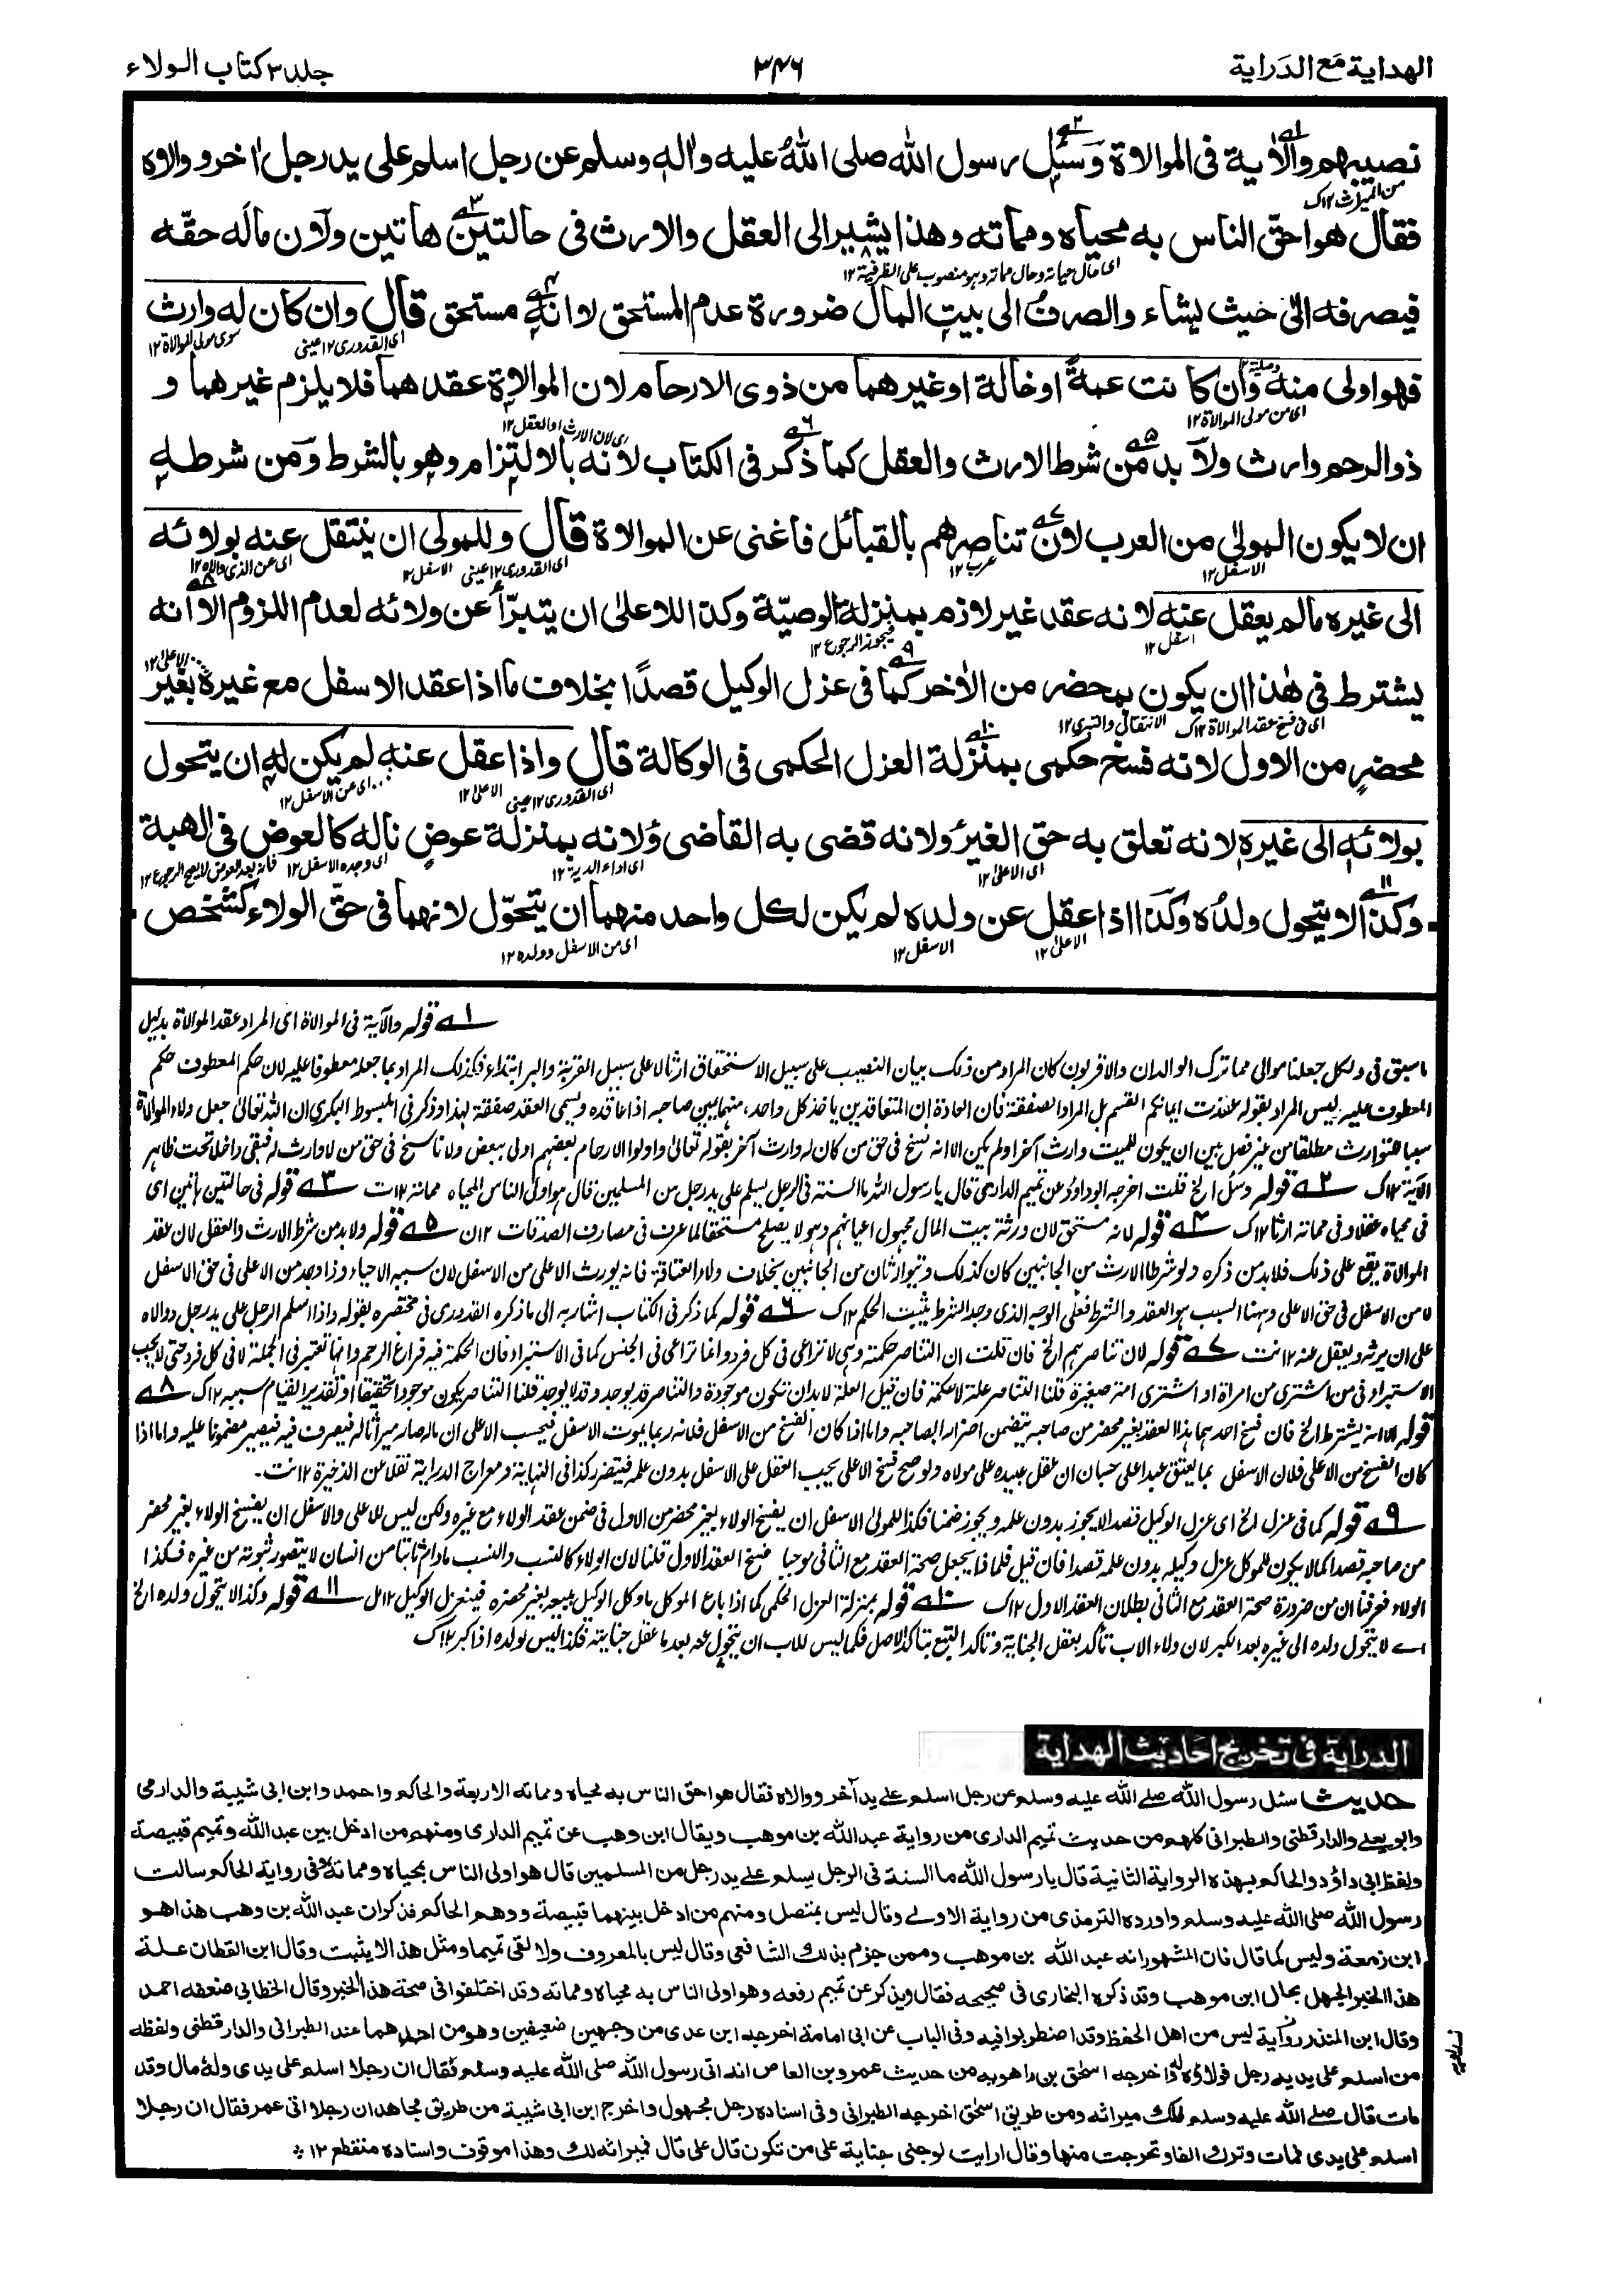 الهداية مع الدراية
٣٤٦
جلد ٣ كتاب الولاء
نصيبهم والآية فى الموالاة وسئل رسول الله صلى الله عليه واله وسلم عن رجل اسلم على يد رجل اخر ووالاه
من الميراث ١٢ ك
فقال هو احق الناس به محياه ومماته وهذا يشير الى العقل والارث فى حالتين هاتين ولان ماله حقه
اى حال حياته وحال مماته وهو منصوب على الظرفية ١٢
فيصرفه الى حيث يشاء والصرف الى بيت المال ضرورة عدم المستحق لا انه مستحق قال وان كان له وارث
اى القدورى ١٢ عينى
سوى مولى الموالاة ١٢
فهو اولى منه وان كانت عمة او خالة او غيرهما من ذوى الارحام لان الموالاة عقدهما فلا يلزم غيرهما و
اى من مولى الموالاة ١٢
ذو الرحم وارث ولا بد من شرط الارث والعقل كما ذكر فى الكتاب لانه بالالتزام وهو بالشرط ومن شرطه
اى لان الارث او العقل ١٢
ان لا يكون المولى من العرب لان تناصرهم بالقبائل فاغنى عن الموالاة قال وللمولى ان ينتقل عنه بولائه
الاسفل ١٢
عرب ١٢
اى القدورى ١٢ عينى
الاسفل ١٢
اى عن الذى والاه ١٢
الى غيره مالم يعقل عنه لانه عقد غير لازم بمنزلة الوصية وكذا للاعلى ان يتبرأ عن ولائه لعدم اللزوم الا انه
اسفل ١٢
فيجوز الرجوع ١٢
يشترط فى هذا ان يكون بمحضر من الاخر كما فى عزل الوكيل قصدا بخلاف ما اذا عقد الاسفل مع غيره بغير
الاعلى ١٢
اى فى فسخ عقد الموالاة ١٢ ك
الانتقال والتبرى ١٢
محضر من الاول لانه فسخ حكمى بمنزلة العزل الحكمى فى الوكالة قال واذا عقل عنه لم يكن له ان يتحول
اى القدورى ١٢ عينى
الاعلى ١٢
اى عن الاسفل ١٢
بولائه الى غيره لانه تعلق به حق الغير ولانه قضى به القاضى ولانه بمنزلة عوض ناله كالعوض فى الهبة
اى الاعلى ١٢
اى اداء الدية ١٢
اى وجده الاسفل ١٢
فانه بعد العوض لا يصح الرجوع ١٢
وكذا لا يتحول ولده وكذا اذا عقل عن ولده لم يكن لكل واحد منهما ان يتحول لانهما فى حق الولاء كشخص
الاعلى ١٢
الاسفل ١٢
اى من الاسفل وولده ١٢
١ قوله والآية فى الموالاة اى المراد عقد الموالاة بدليل
ما سبق فى ولكل جعلنا موالى مما ترك الوالدان والاقربون كان المراد من ذلك بيان النصيب على سبيل الاستحقاق ارثا لا على سبيل القربة والبر ابتداء فكذلك المراد بما جعله معطوفا عليه لان حكم المعطوف حكم
المعطوف عليه ليس المراد بقوله عقدت ايمانكم القسم بل المراد الصفقة فان العادة ان المتعاقدين ياخذ كل واحد منهما يمين صاحبه اذا عاقده ويسمى العقد صفقة لهذا وذكر فى المبسوط البكرى ان الله تعالى جعل ولاء الموالاة
سببا للتوارث مطلقا من غير فصل بين ان يكون للميت وارث آخر او لم يكن الا انه نسخ فى حق من كان له وارث آخر بقوله تعالى واولوا الارحام بعضهم اولى ببعض ولا ناسخ فى حق من لا وارث له فبقى داخلا تحت ظاهر
الآية ١٢ ك ٢ قوله وسئل الخ قلت اخرجه ابو داؤد عن تميم الدارى قال يا رسول الله ما السنة فى الرجل يسلم على يد رجل من المسلمين قال هو اولى الناس بمحياه ومماته ١٢ ت ٣ قوله فى حالتين هاتين اى
فى محياه عقلا وفى مماته ارثا ١٢ ك ٤ قوله لا انه مستحق لان ورثة بيت المال مجهول اعيانهم وهو لا يصلح مستحقا لما عرف فى مصارف الصدقات ١٢ ن ٥ قوله ولا بد من شرط الارث والعقل لان عقد
الموالاة يقع على ذلك فلا بد من ذكره ولو شرطا الارث من الجانبين كان كذلك ويتوارثان من الجانبين بخلاف ولاء العتاقة فانه يورث الاعلى من الاسفل لان سببه الاحياء وذا وجد من الاعلى فى حق الاسفل
لا من الاسفل فى حق الاعلى وههنا السبب هو العقد والشرط فعلى الوجه الذى وجد الشرط يثبت الحكم ١٢ ك ٦ قوله كما ذكر فى الكتاب اشار به الى ما ذكره القدورى فى مختصره بقوله واذا اسلم الرجل على يد رجل ووالاه
على ان يرثه ويعقل عنه ١٢ نت ٧ قوله لان تناصرهم الخ فان قلت ان التناصر حكمته وهى لا تراعى فى كل فرد وانما تراعى فى الجنس كما فى الاستبراء فان الحكمة فيه فراغ الرحم وانها تعتبر فى الجملة لا فى كل فرد حتى لا يجب
الاستبراء فى من اشترى من امرأة او اشترى امة صغيرة قلنا التناصر علة لا حكمة فان قيل العلة لا بد ان تكون موجودة والتناصر قد يوجد وقد لا يوجد قلنا التناصر يكون موجودا تحقيقا او تقديرا لقيام سببه ١٢ ك ٨
قوله الا انه يشترط الخ فان فسخ احدهما هذا العقد بغير محضر من صاحبه يتضمن اضرارا بصاحبه واما اذا كان الفسخ من الاسفل فلانه ربما يموت الاسفل فيحسب الاعلى ان ماله صار ميراثا له فيتصرف فيه فيصير مضمونا عليه واما اذا
كان الفسخ من الاعلى فلان الاسفل بما يعتق عبدا على حسبان ان عقل عبيده على مولاه ولو صح فسخ الاعلى يجب العقل على الاسفل بدون علمه فيتضرر كذا فى النهاية ومعراج الدراية نقلا عن الذخيرة ١٢ نت
٩ قوله كما فى عزل الخ اى عزل الوكيل قصدا لا يجوز بدون علمه ويجوز ضمنا فكذا للمولى الاسفل ان يفسخ الولاء بغير محضر من الاول فى ضمن عقد الولاء مع غيره ولكن ليس للاعلى والاسفل ان يفسخ الولاء بغير محضر
من صاحبه قصدا كما لا يكون للموكل عزل وكيله بدون علمه قصدا فان قيل فلما ذا يجعل صحة العقد مع الثانى موجبا فسخ العقد الاول قلنا لان الولاء كالنسب والنسب ما دام ثابتا من انسان لا يتصور ثبوته من غيره فكذا
الولاء فعرفنا ان من ضرورة صحة العقد مع الثانى بطلان العقد الاول ١٢ ك ١٠ قوله بمنزلة العزل الحكمى كما اذا باع الموكل ما وكل الوكيل ببيعه بغير محضره فينعزل الوكيل ١٢ مل ١١ قوله وكذا لا يتحول ولده الخ
اے لا يتحول ولده الى غيره بعد الكبر لان ولاء الاب تأكد بعقل الجناية وتاكد التبع بتاكد الاصل فكما ليس للاب ان يتحول عنه بعد ما عقل جنايته فكذا ليس لولده اذا كبر ١٢ ك
الدراية فى تخريج احاديث الهداية
حديث سئل رسول الله صلے الله عليه وسلم عن رجل اسلم علے يد آخر ووالاه فقال هو احق الناس به محياه ومماته الاربعة والحاكم واحمد وابن ابى شيبة والدارمى
وابو يعلے والدارقطنى والطبرانى كلهم من حديث تميم الدارى من رواية عبد الله بن موهب ويقال ابن وهب عن تميم الدارى ومنهم من ادخل بين عبد الله وتميم قبيصة
ولفظ ابى داؤد والحاكم بهذه الرواية الثانية قال يا رسول الله ما السنة فى الرجل يسلم علے يد رجل من المسلمين قال هو اولى الناس بمحياه ومماته وفى رواية الحاكم سالت
رسول الله صلى الله عليه وسلم واورده الترمذى من رواية الاولے وقال ليس بمتصل ومنهم من ادخل بينهما قبيصة ووهم الحاكم فذكر ان عبد الله بن وهب هذا هو
ابن زمعة وليس كما قال فان المشهور انه عبد الله بن موهب وممن جزم بذلك الشافعى وقال ليس بالمعروف ولا لقى تميما ومثل هذا لا يثبت وقال ابن القطان علة
هذا الخبر الجهل بحال ابن موهب وقد ذكره البخارى فى صحيحه فقال ويذكر عن تميم رفعه وهو اولى الناس به محياه ومماته وقد اختلفوا فى صحة هذا الخبر وقال الخطابى ضعفه احمد
وقال ابن المنذر رواية ليس من اهل الحفظ وقد اضطربوا فيه وفى الباب عن ابى امامة اخرجه ابن عدى من وجهين ضعيفين وهو من احدهما عند الطبرانى والدارقطنى ولفظه
من اسلم على يديه رجل فولاؤه له واخرجه اسحق بن راهويه من حديث عمرو بن العاص انه اتى رسول الله صلى الله عليه وسلم فقال ان رجلا اسلم على يدى وله مال وقد
مات قال صلے الله عليه وسلم فلك ميراثه ومن طريق اسحق اخرجه الطبرانى وفى اسناده رجل مجهول واخرج ابن ابى شيبة من طريق مجاهد ان رجلا اتى عمر فقال ان رجلا
اسلم على يدى فمات وترك الفا وتحرجت منها وقال ارايت لو جنى جناية على من تكون قال على قال فميراثه لك وهذا موقوف واسناده منقطع ١٢